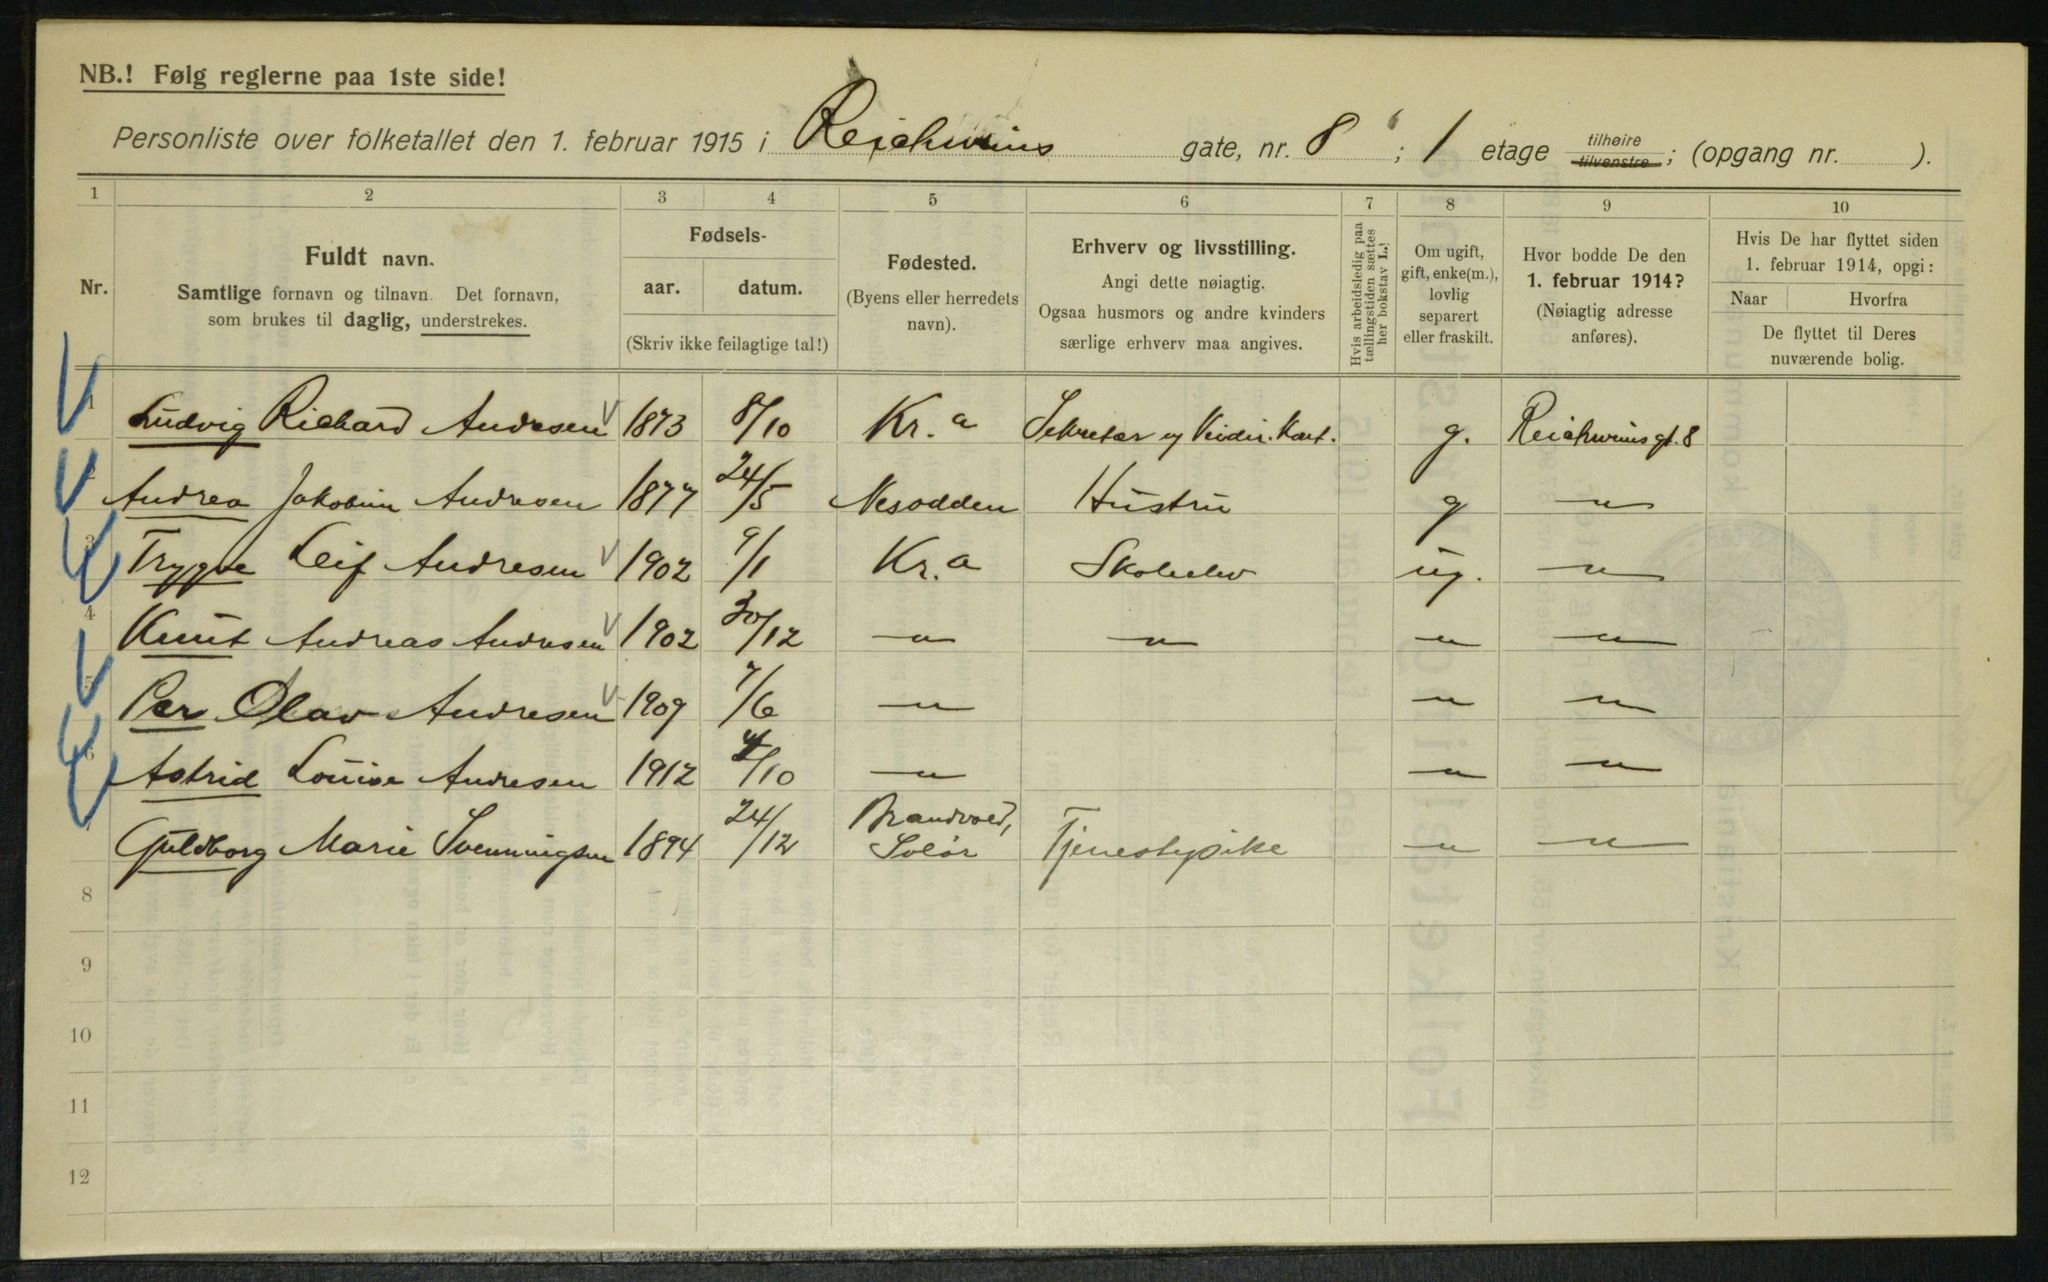 NB.! Følg reglerne paa 1ste side!
Personliste over folketallet den 1. februar 1915 i Reichweins gate, nr. 8 ; 1 etage tilhøire tilvenstre ; (opgang nr. ).
1 2 3 4 5 6 7 8 9 10
Nr.
Fuldt navn.
Samtlige fornavn og tilnavn. Det fornavn,
som brukes til daglig, understrekes.
Fødsels-
aar. datum.
(Skriv ikke feilagtige tal!)
Fødested.
(Byens eller herredets
navn).
Erhverv og livsstilling.
Angi dette nøiagtig.
Ogsaa husmors og andre kvinders
særlige erhverv maa angives.
Hvis arbeidsledig paa
tællingstiden sættes
her bokstav L.!
Om ugift,
gift, enke(m.),
lovlig
separert
eller fraskilt.
Hvor bodde De den
1. februar 1914?
(Nøiagtig adresse
anføres).
Hvis De har flyttet siden
1. februar 1914, opgi:
Naar Hvorfra
De flyttet til Deres
nuværende bolig.
1 Ludvig Richard Andresen 1873 8/10 Kr.a Sekretær g. Reichweinsgt. 8
2 Andrea Jakobine Andresen 1877 24/5 Nesodden Hustru g — " —
3 Trygve Leif Andresen 1902 9/1 Kr.a Skoleelev ug. — " —
4 Knut Andreas Andresen 1902 30/12 — " — — " — — " — — " —
5 Per Olav Andresen 1909 7/6 — " — — " — — " —
6 Astrid Louise Andresen 1912 4/10 — " — — " — — " —
7 Guldborg Marie Svenningsen 1894 24/12 Brandvold, Solør Tjenestepike — " — — " —
8
9
10
11
12